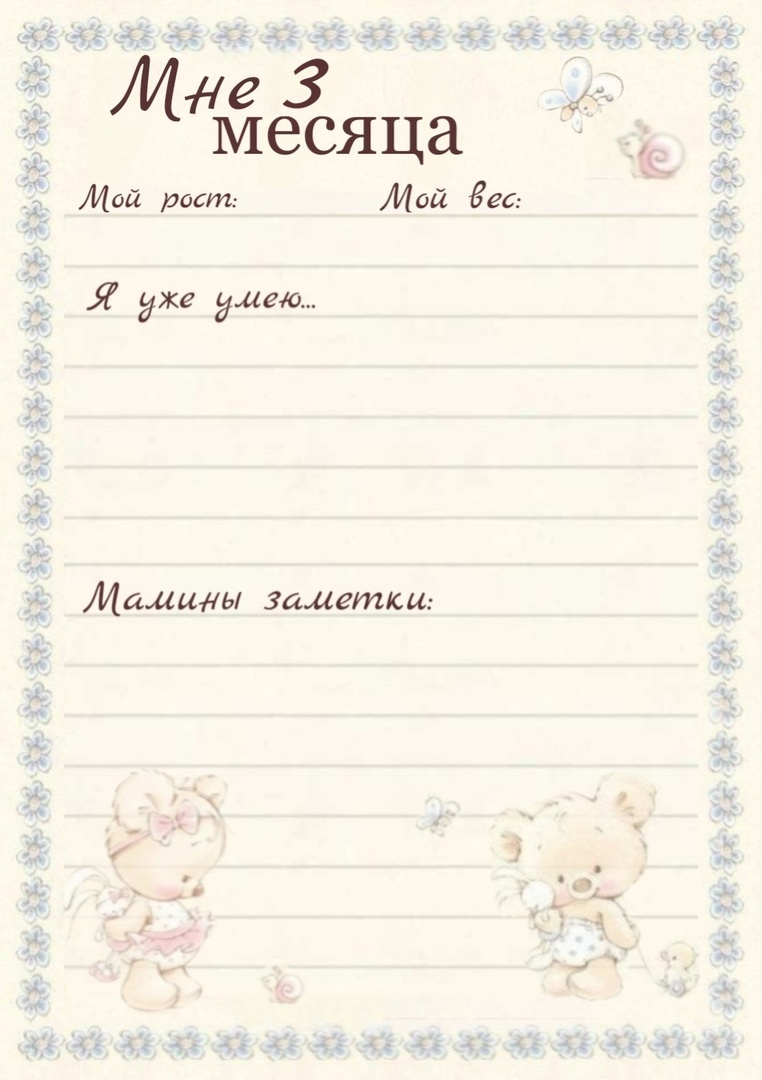 Мне 3
месяца
Мой рост: Мой вес:
Я уже умею...
Мамины заметки: